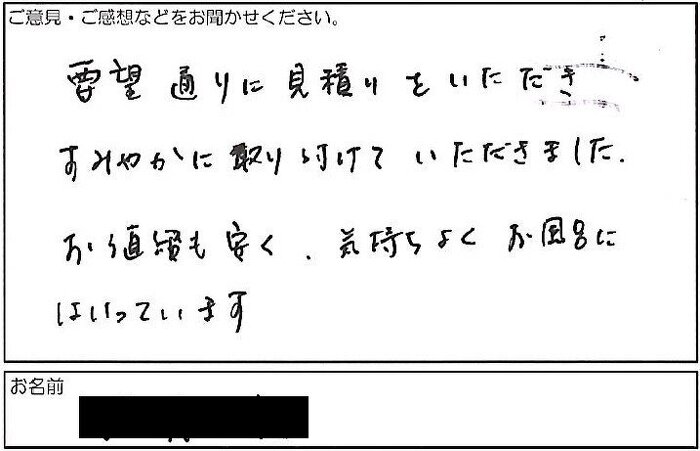 ご意見・ご感想などをお聞かせください。
要望通りに見積りをいただき
すみやかに取り付けていただきました.
お値段も安く、気持ちよくお風呂に
はいっています
お名前